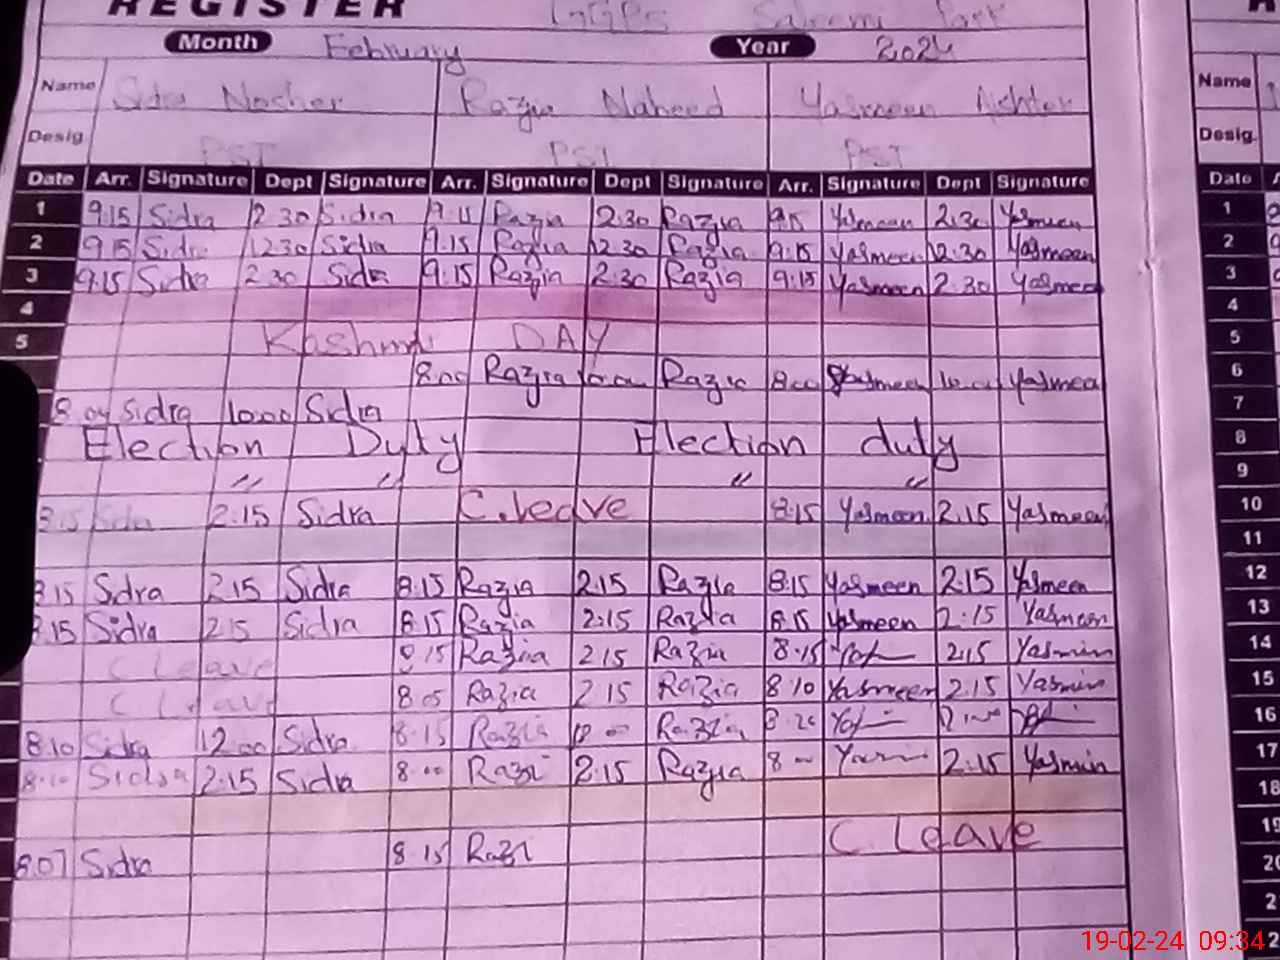 REGISTER GGPS Saleem Park
Month February Year 2024
Name Sidra Nosher Razia Naheed Yasmeen Akhter Name
Desig. PST PST PST Desig.
Date Arr. Signature Dept Signature Arr. Signature Dept Signature Arr. Signature Dept Signature Date
1 9:15 Sidra 2:30 Sidra 9:15 Razia 2:30 Razia 9:15 Yasmeen 2:30 Yasmeen 1
2 9:15 Sidra 12:30 Sidra 9:15 Razia 12:30 Razia 9:15 Yasmeen 12:30 Yasmeen 2
3 9:15 Sidra 2:30 Sidra 9:15 Razia 2:30 Razia 9:15 Yasmeen 2:30 Yasmeen 3
4 4
5 Kashmir DAY 5
8:00 Razia 10:00 Razia 8:00 Yasmeen 10:00 Yasmeen 6
8:04 Sidra 10:00 Sidra 7
Election Duty Election duty 8
" " " " 9
8:15 Sidra 2:15 Sidra C.leave 8:15 Yasmeen 2:15 Yasmeen 10
11
8:15 Sidra 2:15 Sidra 8:15 Razia 2:15 Razia 8:15 Yasmeen 2:15 Yasmeen 12
8:15 Sidra 2:15 Sidra 8:15 Razia 2:15 Razia 8:15 Yasmeen 2:15 Yasmeen 13
C leave 8:15 Razia 2:15 Razia 8:15 2:15 Yasmin 14
C leave 8:05 Razia 2:15 Razia 8:10 Yasmeen 2:15 Yasmin 15
8:10 Sidra 12:00 Sidra 8:15 Razia 12:00 Razia 8:20 12:00 16
8:10 Sidra 2:15 Sidra 8:00 Razi 2:15 Razia 8:00 Yasmin 2:15 Yasmin 17
18
C. Leave 19
8:07 Sidra 8:15 Razi 20
19-02-24 09:34